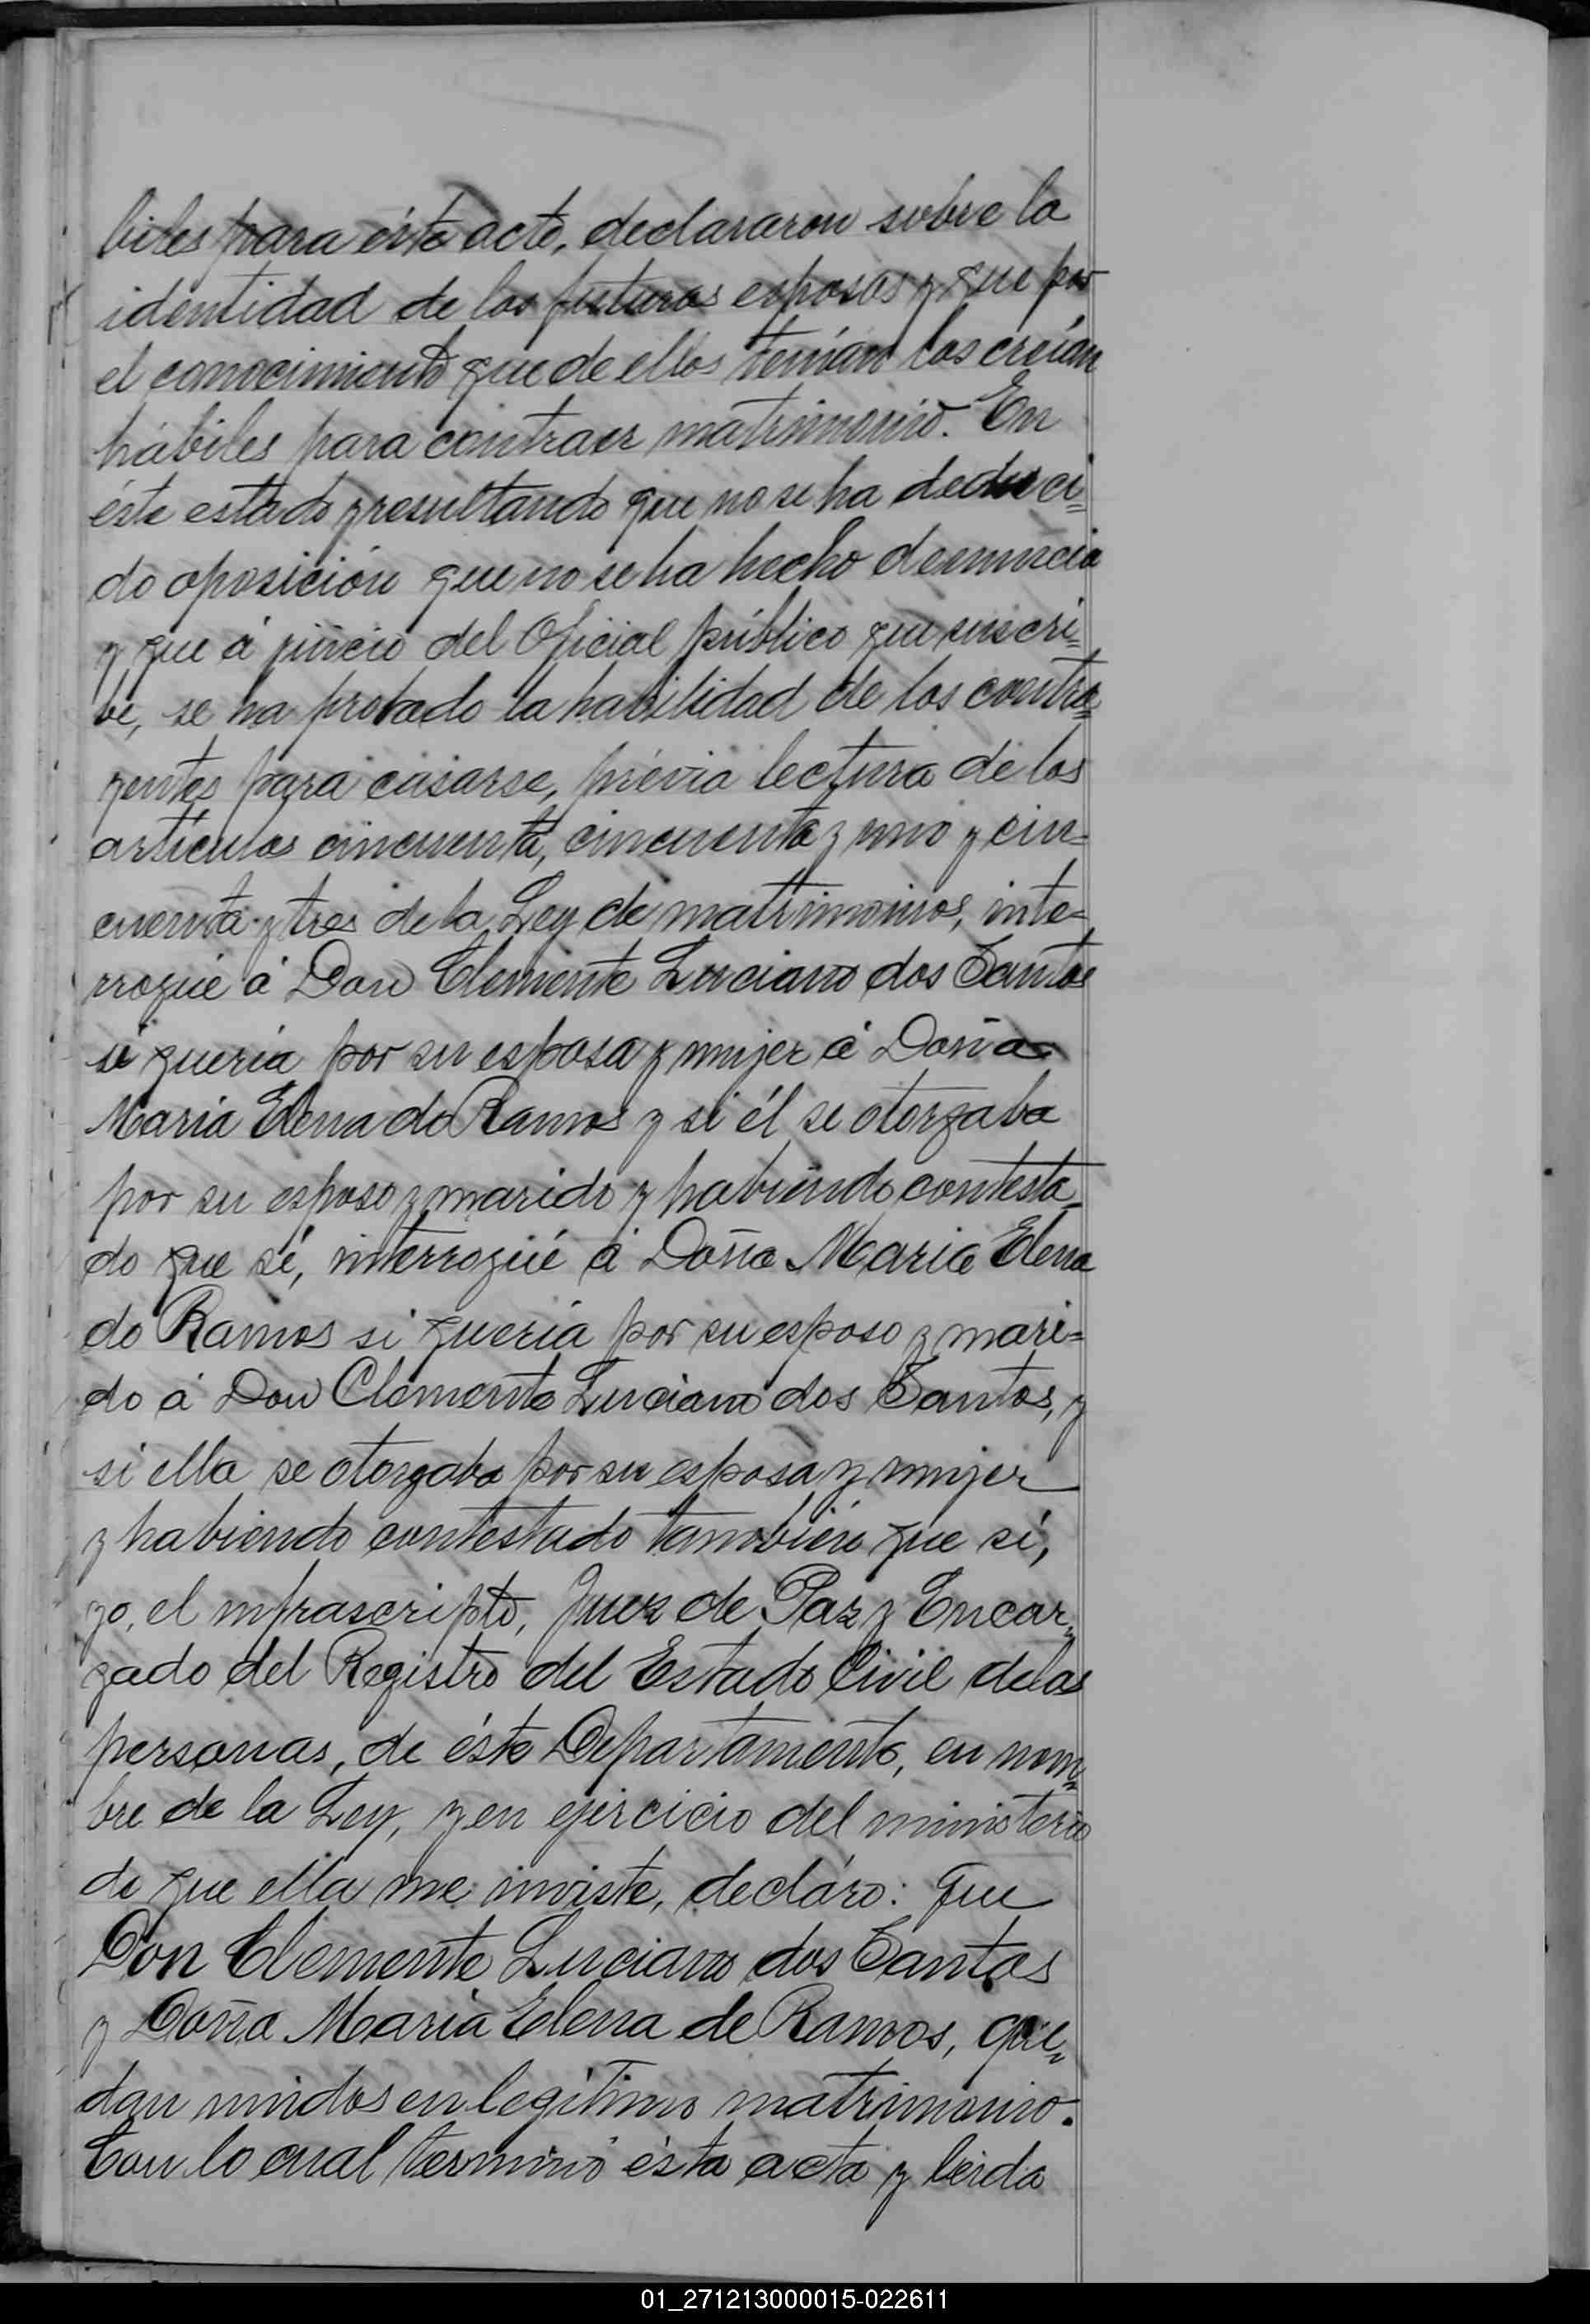 biles para éste acto, declararon sobre la
identidad de los futuros esposos y que por
el conocimiento que de ellos tenían los creían
hábiles para contraer matrimonio. En
éste estado y resultando que no se ha deduci=
do oposición que no se ha hecho denuncia
y que á juicio del Oficial público que suscri=
be, se ha probado la habilidad de los contra=
yentes para casarse, prévia lectura de los
artículos cincuenta, cincuenta y uno y cin=
cuenta y tres de la Ley de matrimonios, inte=
rrogué á Don Clemente Luciano dos Santos
si quería por su esposa y mujer á Doña
María Elena do Ramos y si él se otorgaba
por su esposo y marido y habiendo contesta=
do que sí, interrogué á Doña María Elena
do Ramos si quería por su esposo y mari=
do á Don Clemente Luciano dos Santos, y
si ella se otorgaba por su esposa y mujer
y habiendo contestado también que sí,
yo, el infrascripto, Juez de Paz y Encar=
gado del Registro del Estado Civil de las
personas, de éste Departamento, en nom=
bre de la Ley, y en ejercicio del ministerio
de que ella me inviste, decláro: que
Don Clemente Luciano dos Santos
y Doña María Elena de Ramos, que=
dan unidos en legítimo matrimonio.
Con lo cual terminó ésta acta y leída
01_271213000015-022611